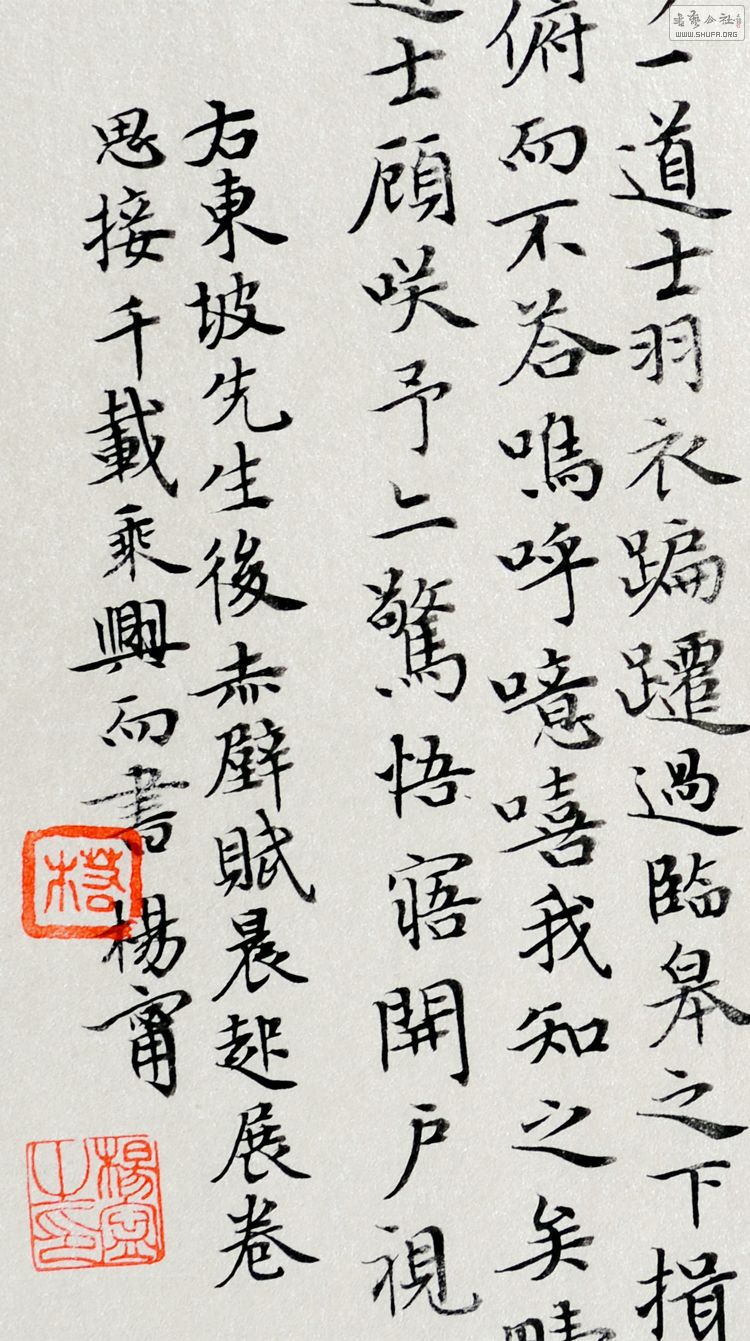 一道士羽衣蹁躚過臨皋之下揖
俯而不荅嗚呼噫嘻我知之矣疇
道士顧咲予亦驚悟寤開戶視
右東坡先生後赤壁賦晨起展卷
思接千載乘興而書楊甯
楊寧之印
書藝公社
WWW.SHUFA.ORG